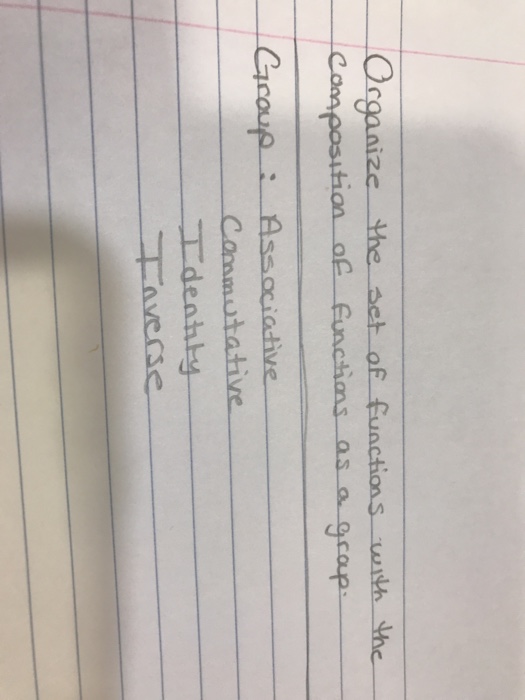 Organize the set of functions with the
composition of functions as a grap.
Group : Associative
Commutative
Identity
Inverse